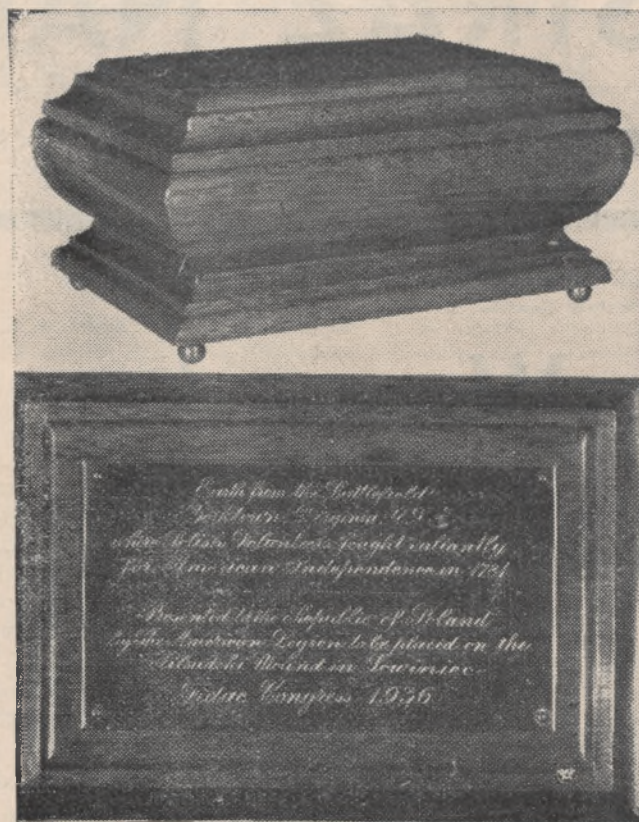 Earth from the Battlefield
Yorktown, Virginia, U.S.
where Polish Volunteers fought valiantly
for American Independence in 1781
Presented to the Republic of Poland
by the American Legion to be placed on the
Pilsudski Mound in Sowiniec
Fidac Congress 1936